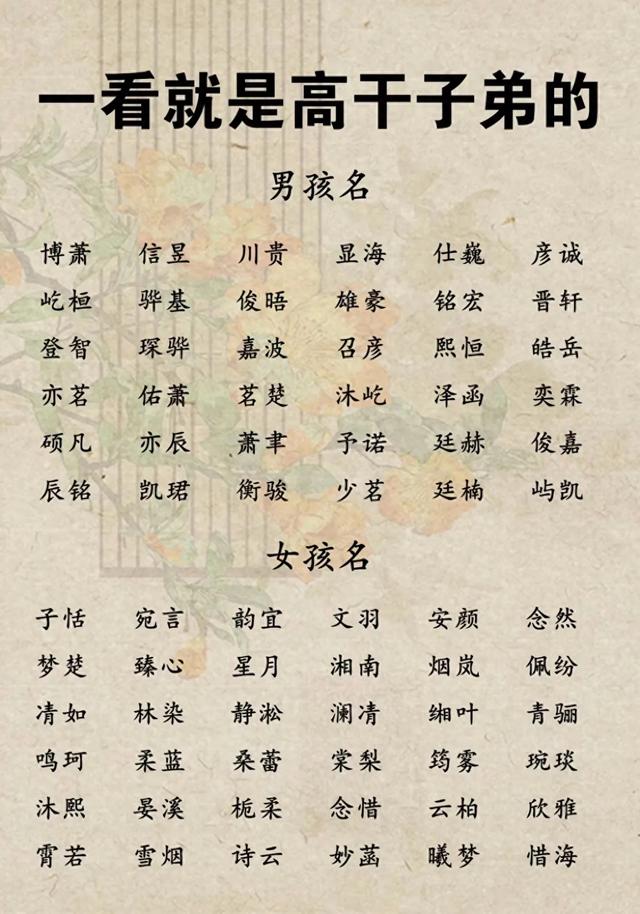 一看就是高干子弟的
男孩名
博萧 信昱 川贵 显海 仕巍 彦诚
屹桓 骅基 俊晤 雄豪 铭宏 晋轩
登智 琛骅 嘉波 召彦 熙恒 皓岳
亦茗 佑萧 茗楚 沐屹 泽函 奕霖
硕凡 亦辰 萧聿 予诺 廷赫 俊嘉
辰铭 凯珺 衡骏 少茗 廷楠 屿凯
女孩名
子恬 宛言 韵宜 文羽 安颜 念然
梦楚 臻心 星月 湘南 烟岚 佩纷
凊如 林染 静淞 澜凊 缃叶 青骊
鸣珂 柔蓝 桑蕾 棠梨 筠雾 琬琰
沐熙 晏溪 栀柔 念惜 云柏 欣雅
霄若 雪烟 诗云 妙菡 曦梦 惜海